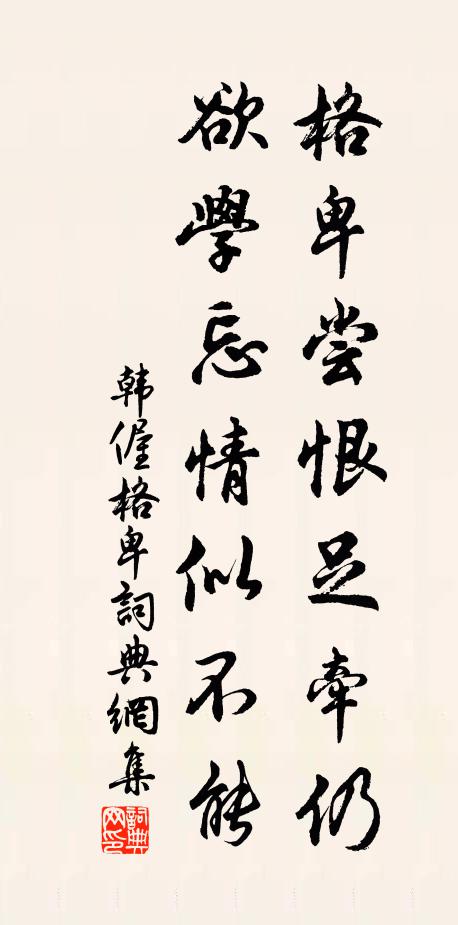 格卑尝恨足牵仍
欲學忘情似不能
韩偓格卑詞典網集
詞典网印